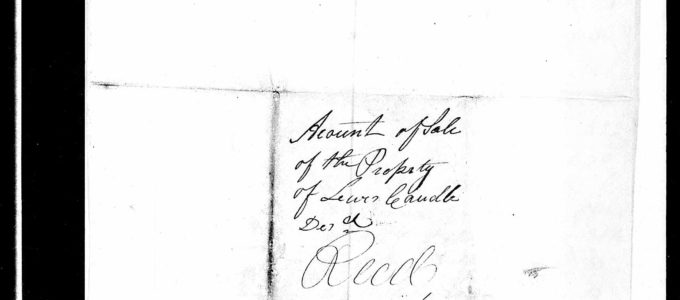 Acount of Sale
of the Propety
of Lewis Caudle
Des^d
Recd